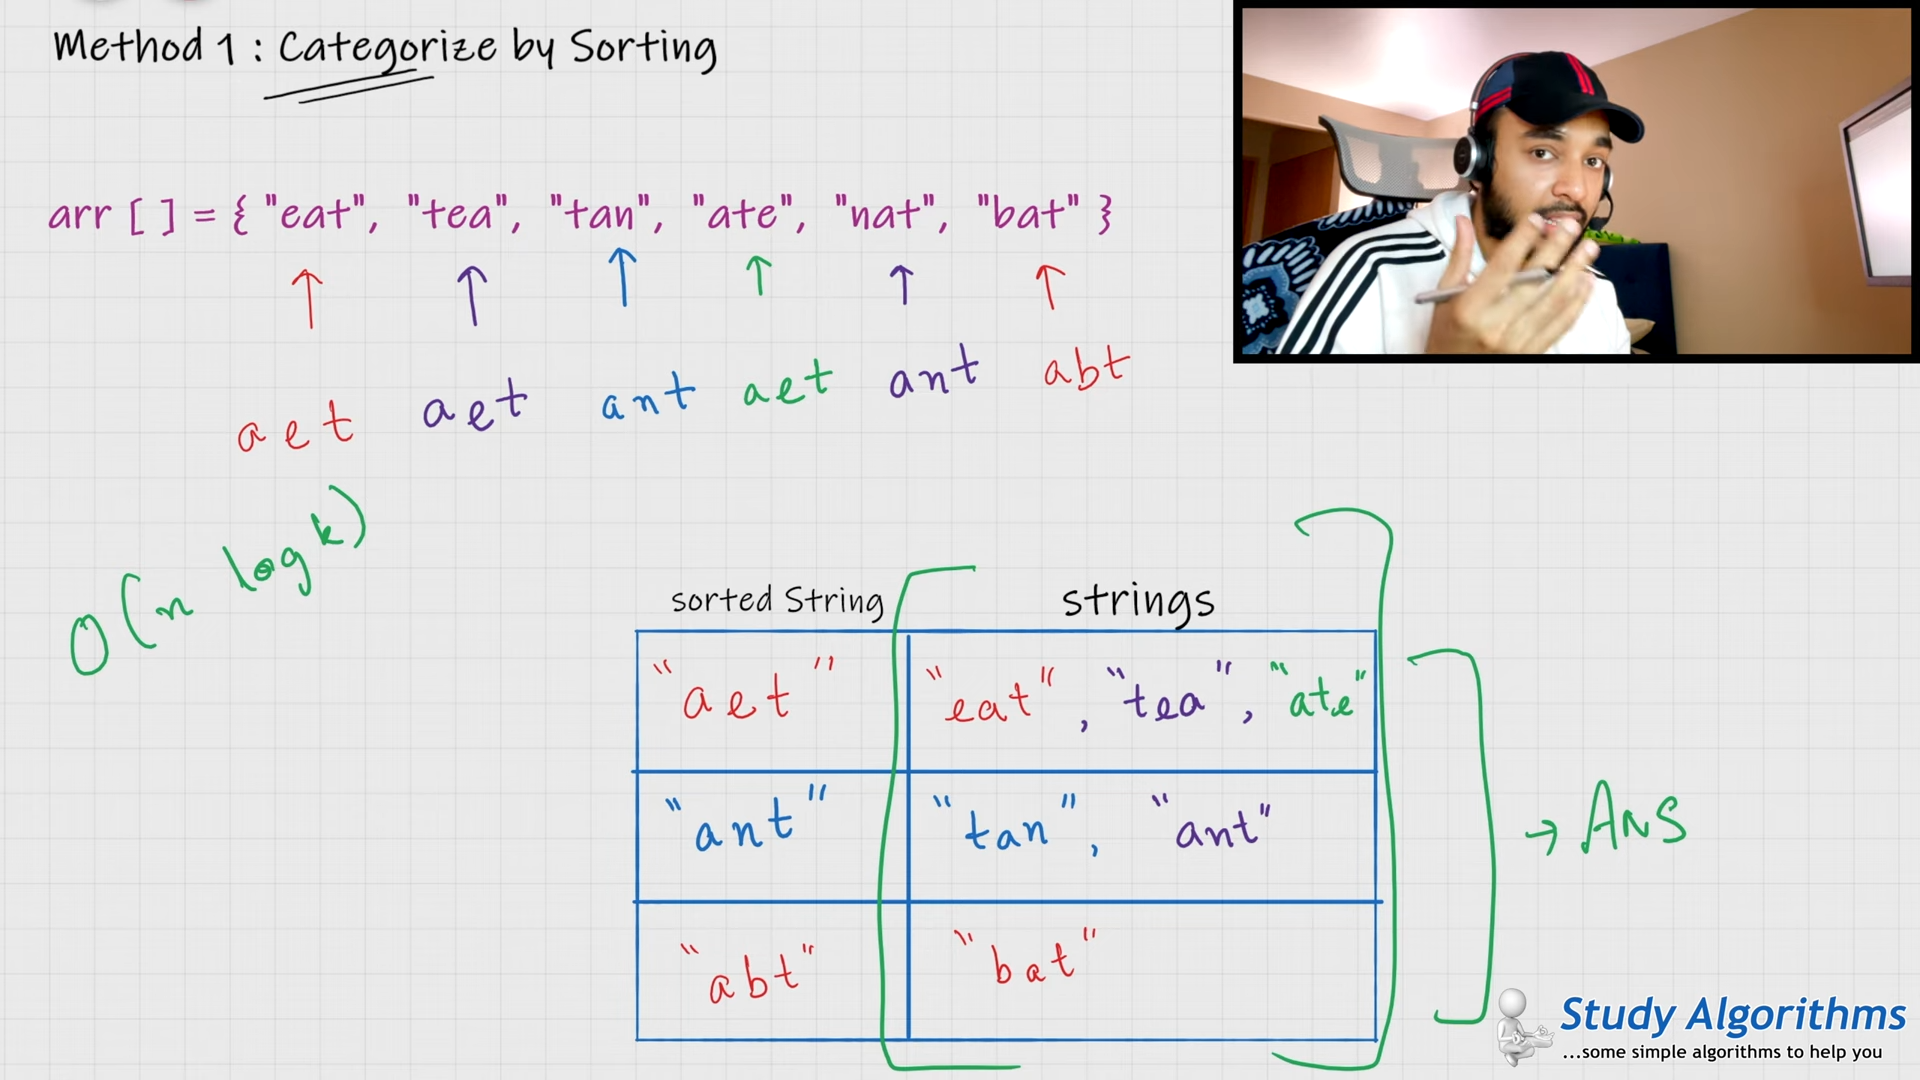 Method 1 : Categorize by Sorting
arr [ ] = { "eat", "tea", "tan", "ate", "nat", "bat" }
aet aet ant aet ant abt
O(n log k)
sorted String strings
"aet" "eat", "tea", "ate"
"ant" "tan", "ant"
→ Ans
"abt" "bat"
Study Algorithms
...some simple algorithms to help you